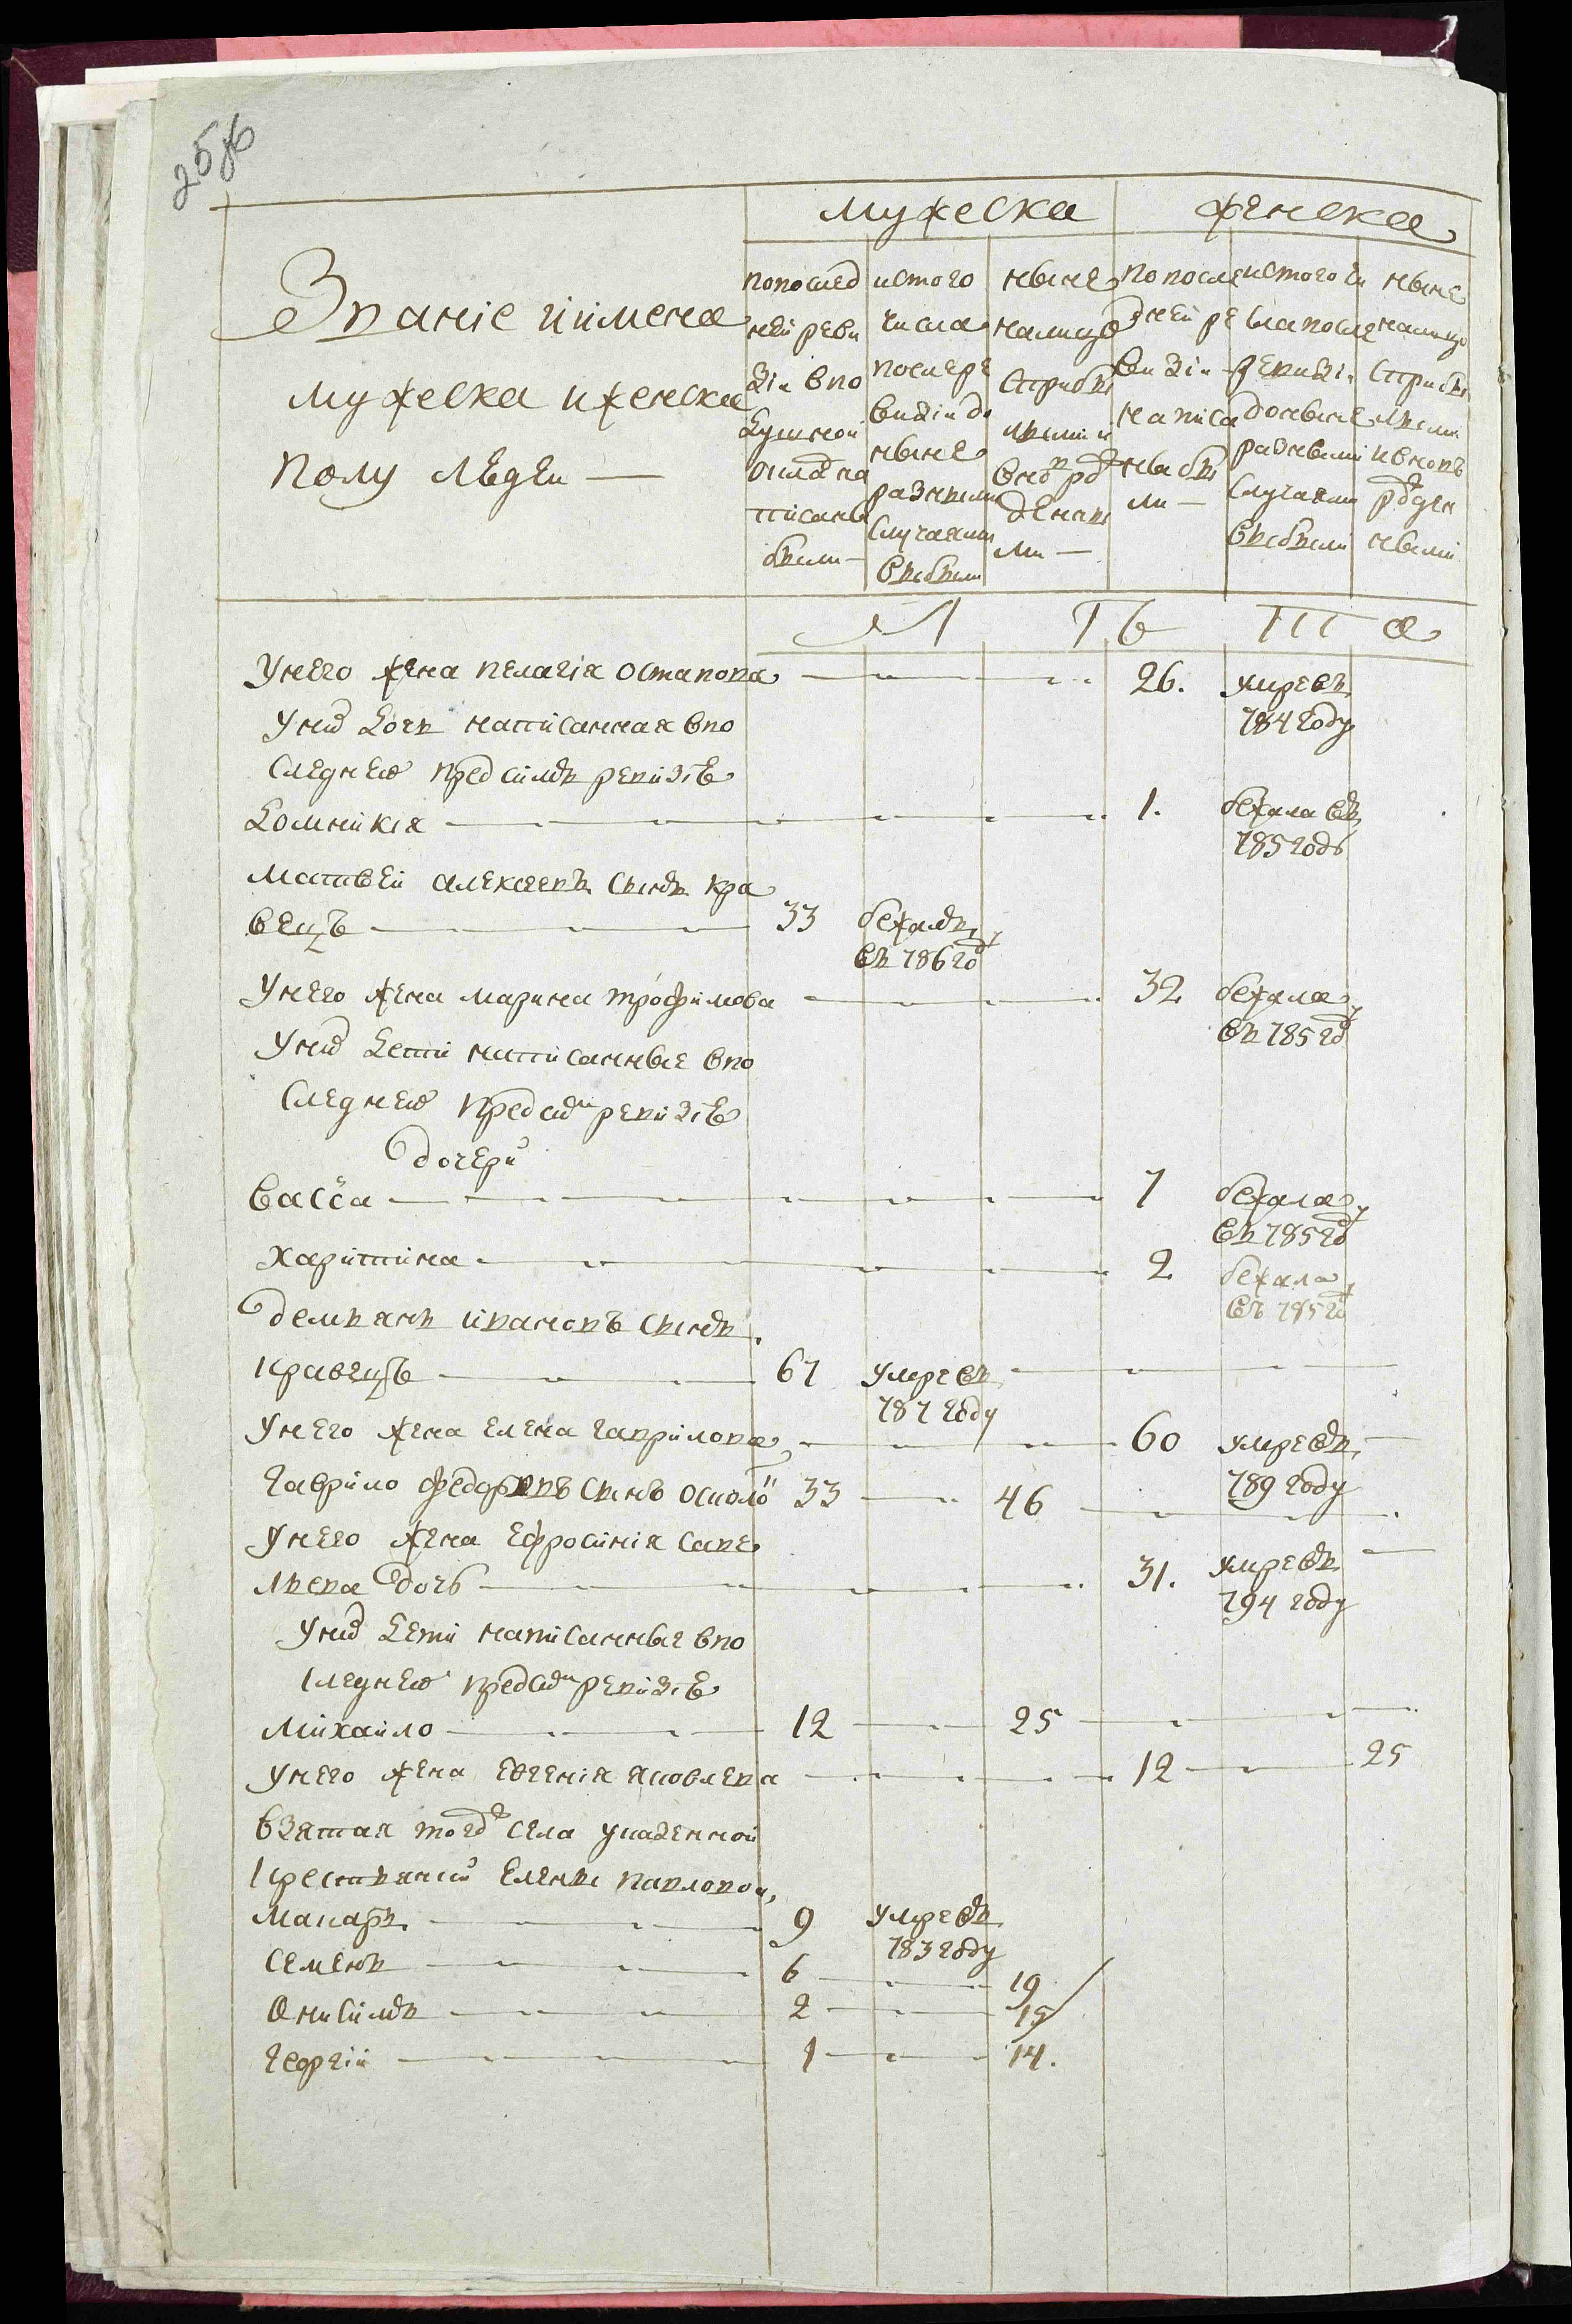 258б
Мужеска Женска
Званіе иимена
мужеска иженска
полу людеи
попослед
ней реви
зіи впо
душной
окладъ на
писаны
были
истого
числа
послере
визіи до
ныне
разными
случаями
выбыли
ныне
налицо
сприбы
лыми и
вновь рож
денны
ми
попосле
дней ре
визіи
написа
ны бы
ли
истого чи
сла после
ревизіи
доныне
разными
случаями
выбыли
ныне
налицо
сприбы
лыми
ивновь
рожден
ными
Л Ѣ Т а
Унего жена пелагія остапова 26. умре въ
784 году
Унихъ дочь написанная впо
следнею предсимъ ревизіѣ
домникія 1. бежала въ
785 годъ
матвей алексеевъ сынъ кра
вецъ 33 бежалъ
въ 786 год
Унего жена марина трофимова 32 бежала
въ 785 год
Унихъ дети написанные впо
следнею предсимъ ревизіѣ
дочери
васса 7 бежала
въ 785 год
харитина 2 бежала
въ 785 год
демьянъ ивановъ сынъ
кравецъ 67 умре въ
787 году
Унего жена елена гаврилова 60 умре въ
789 году
гаврило федоровъ сынъ 33 46
Унего жена ефросинія саве
льева дочь 31. умре въ
794 году
Унихъ дети написанные впо
следнею предсимъ ревизіѣ
михаило 12 25
Унего жена евгенія яковлева 12 25
взятая тогож села указенной
крестьянки елены павловой,
макаръ 9 умре въ
783 году
семенъ 6 19
Онисимъ 2 15
георгій 1 14.